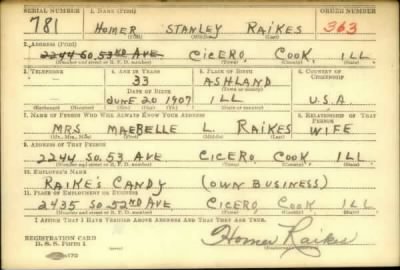 SERIAL NUMBER 1. NAME (Print) ORDER NUMBER
781 HOMER STANLEY RAIKES 363
(First) (Middle) (Last)
2. ADDRESS (Print)
2244 SO. 53RD AVE CICERO, COOK, ILL
(Number and street or R. F. D. number) (Town) (County) (State)
3. TELEPHONE 4. AGE IN YEARS 5. PLACE OF BIRTH 6. COUNTRY OF CITIZENSHIP
33 ASHLAND
DATE OF BIRTH (Town or county)
JUNE 20 1907 ILL U.S.A.
(Exchange) (Number) (Mo.) (Day) (Yr.) (State or country)
7. NAME OF PERSON WHO WILL ALWAYS KNOW YOUR ADDRESS 8. RELATIONSHIP OF THAT PERSON
MRS MAEBELLE L. RAIKES WIFE
(Mr., Mrs., Miss) (First) (Middle) (Last)
9. ADDRESS OF THAT PERSON
2244 SO. 53 AVE CICERO, COOK ILL
(Number and street or R. F. D. number) (Town) (County) (State)
10. EMPLOYER'S NAME
RAIKES CANDY (OWN BUSINESS)
11. PLACE OF EMPLOYMENT OR BUSINESS
2435 SO. 52ND AVE, CICERO, COOK ILL
(Number and street or R. F. D. number) (Town) (County) (State)
I AFFIRM THAT I HAVE VERIFIED ABOVE ANSWERS AND THAT THEY ARE TRUE.
REGISTRATION CARD
D. S. S. Form 1 Homer Raikes